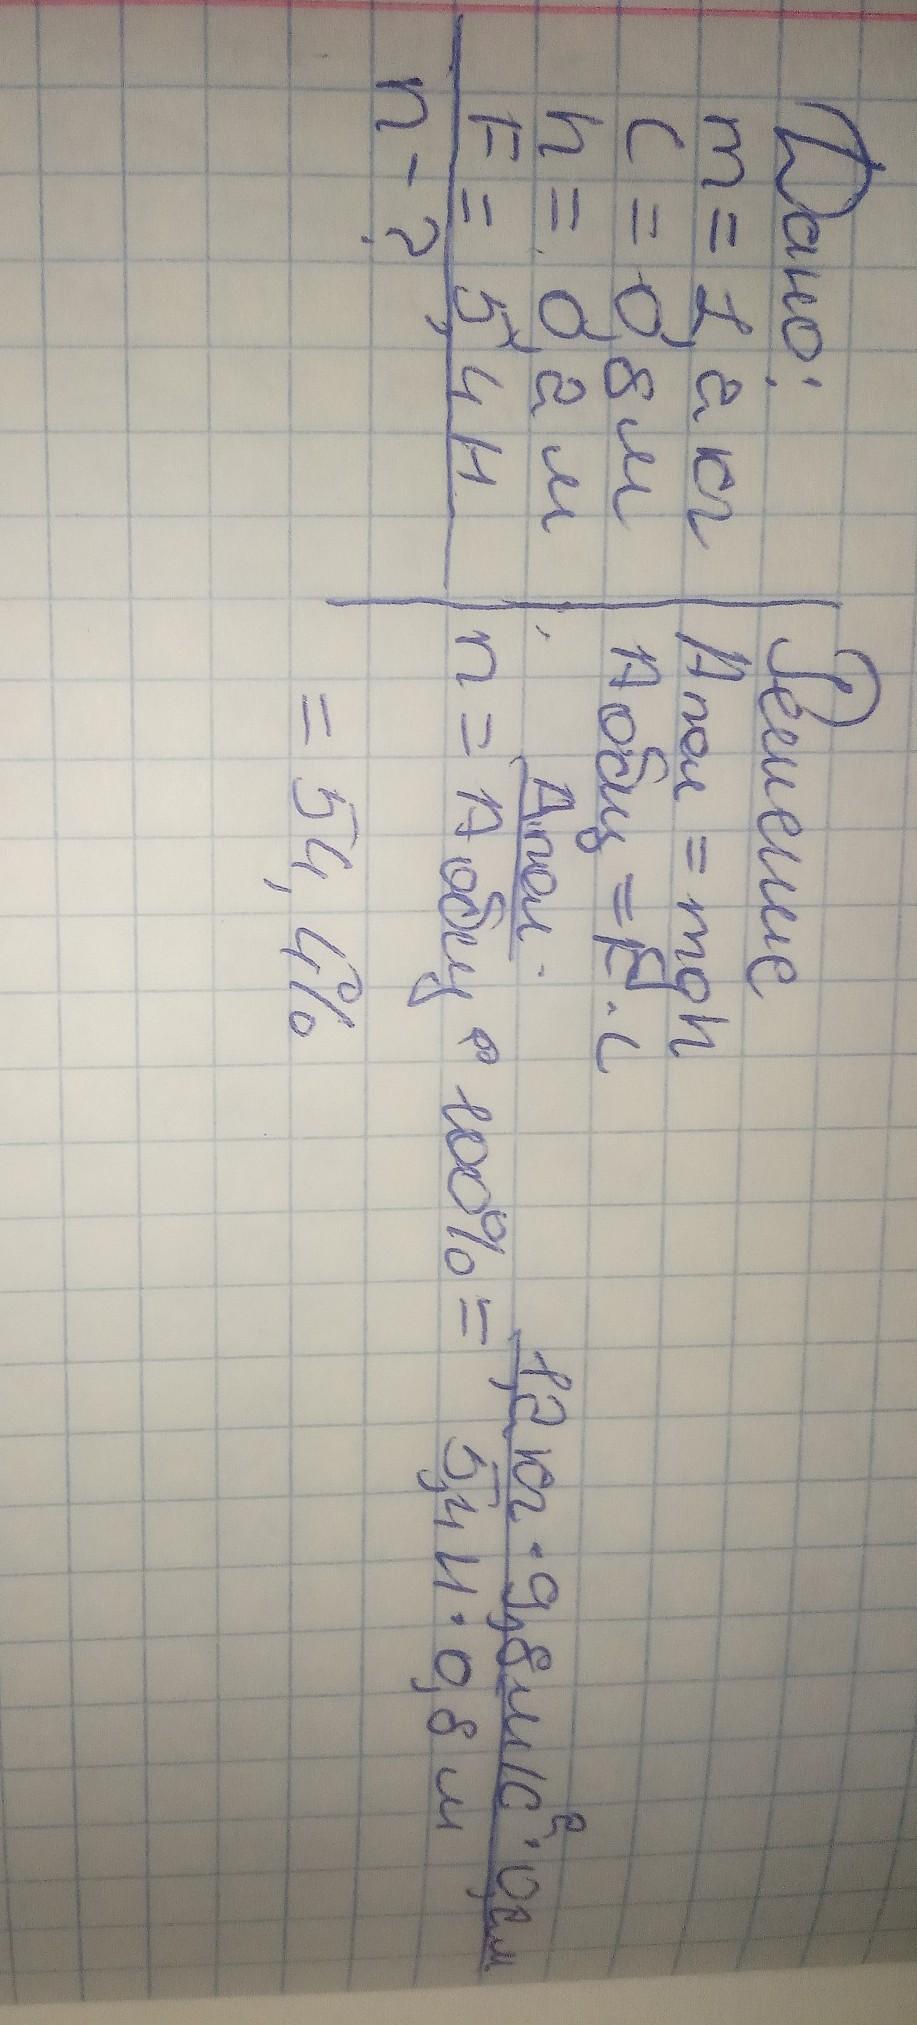 Дано:
m = 1,2 кг
l = 0,8 м
h = 0,2 м
F = 5,4 Н
n - ?
Решение
Апол = mgh
Аобщ = F · l
n = Апол / Аобщ · 100% = 1,2 кг · 9,8 м/с² · 0,2м / 5,4 Н · 0,8 м
= 54,4%